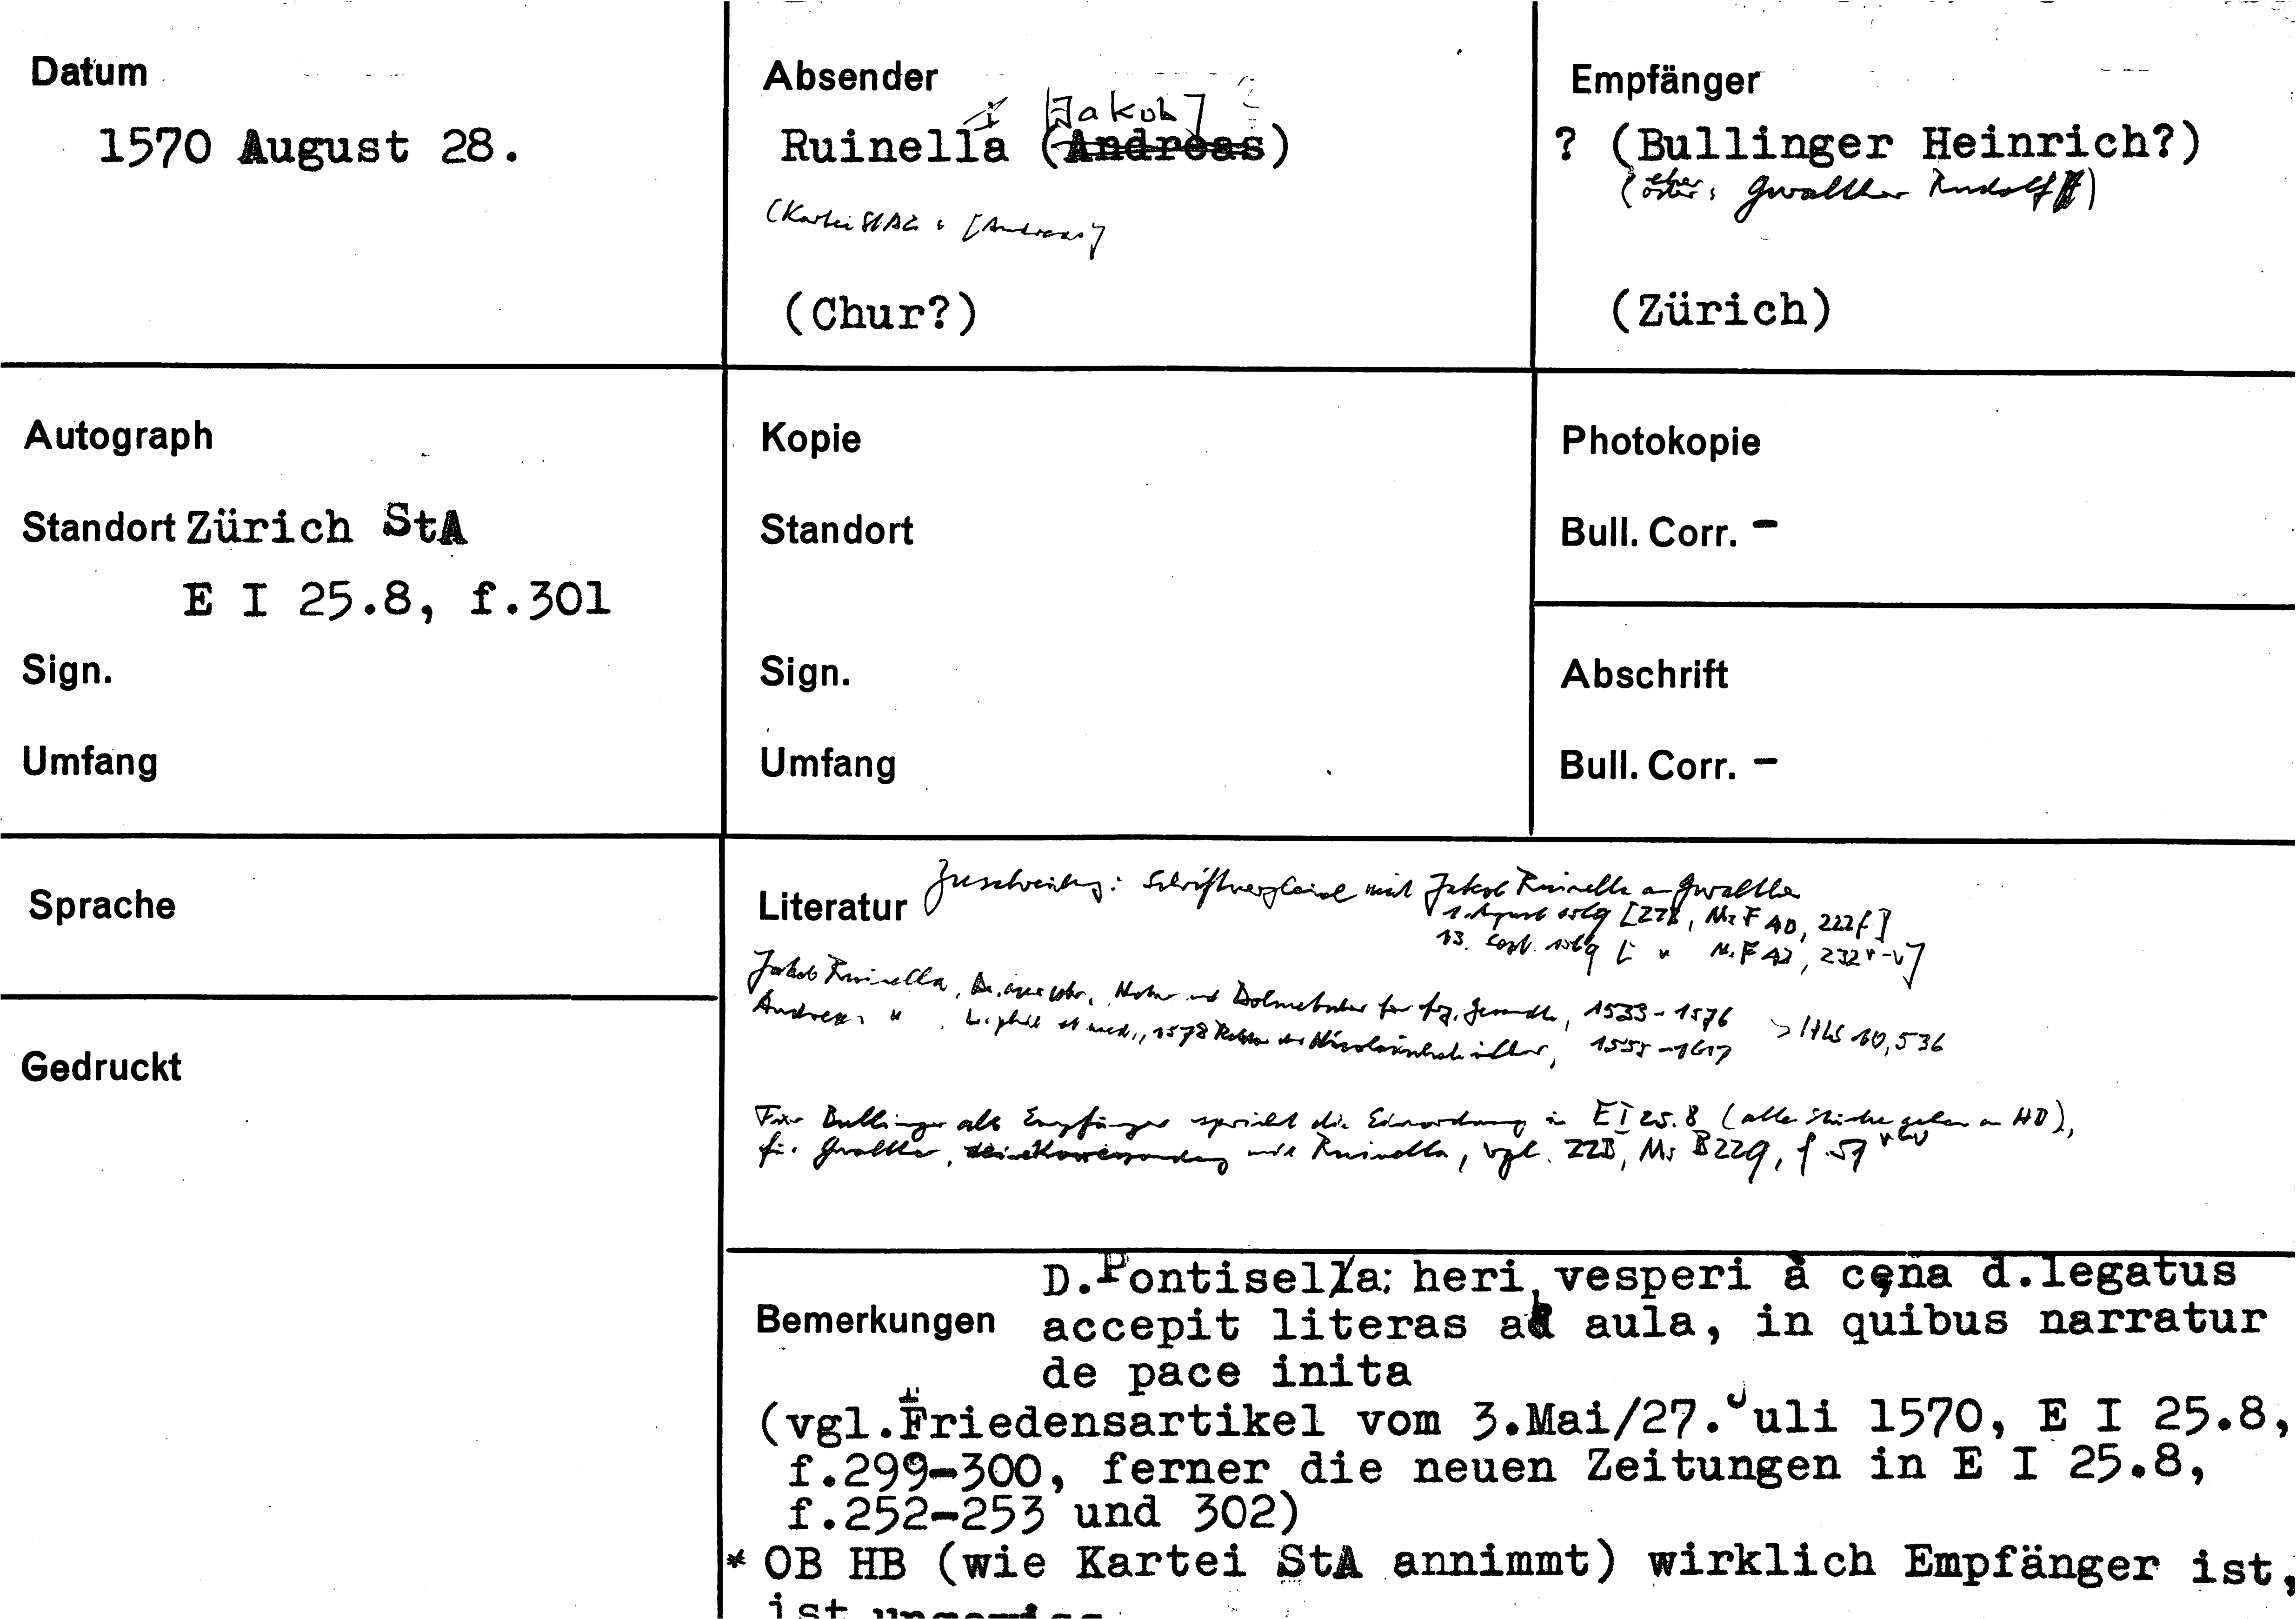 Datum
1570 August 28.
Absender
[Jakob]
Ruinella (Andreas)
(Kartei StAZ: [Andreas]
(Chur?)
Empfänger
? (Bullinger Heinrich?)
(eher: Gwalther Rudolf)
(Zürich)
Autograph
Standort Zürich StA
E I 25.8, f.301
Sign.
Umfang
Kopie
Standort
Sign.
Umfang
Photokopie
Bull. Corr. -
Abschrift
Bull. Corr. -
Sprache
Gedruckt
Literatur Zuschreibung: Schriftvergleich mit Jakob Ruinella an Gwalther
1. August 1569 [ZZB, Ms F 40, 222f]
13. Sept. 1569 [ " Ms F 42, 232 r-v]
Jakob Ruinella, Notar und Dolmetscher für frz. Gesandte, 1533-1576
Andreas " Dr. phil et med., 1578 Rektor der Nicolaischule in Chur, 1555-1617 > HLS 10,536
Für Bullinger als Empfänger spricht die Einordnung in E I 25.8 (alle Stücke gehen an HB),
für Gwalther, seine Korrespondenz mit Ruinella, vgl. ZZB, Ms B 229, f. 59
Bemerkungen
D.Pontisella: heri vesperi à cęna d.legatus
accepit literas ab aula, in quibus narratur
de pace inita
(vgl.Friedensartikel vom 3.Mai/27.Juli 1570, E I 25.8,
f.299-300, ferner die neuen Zeitungen in E I 25.8,
f.252-253 und 302)
* OB HB (wie Kartei StA annimmt) wirklich Empfänger ist,
ist ungewiss